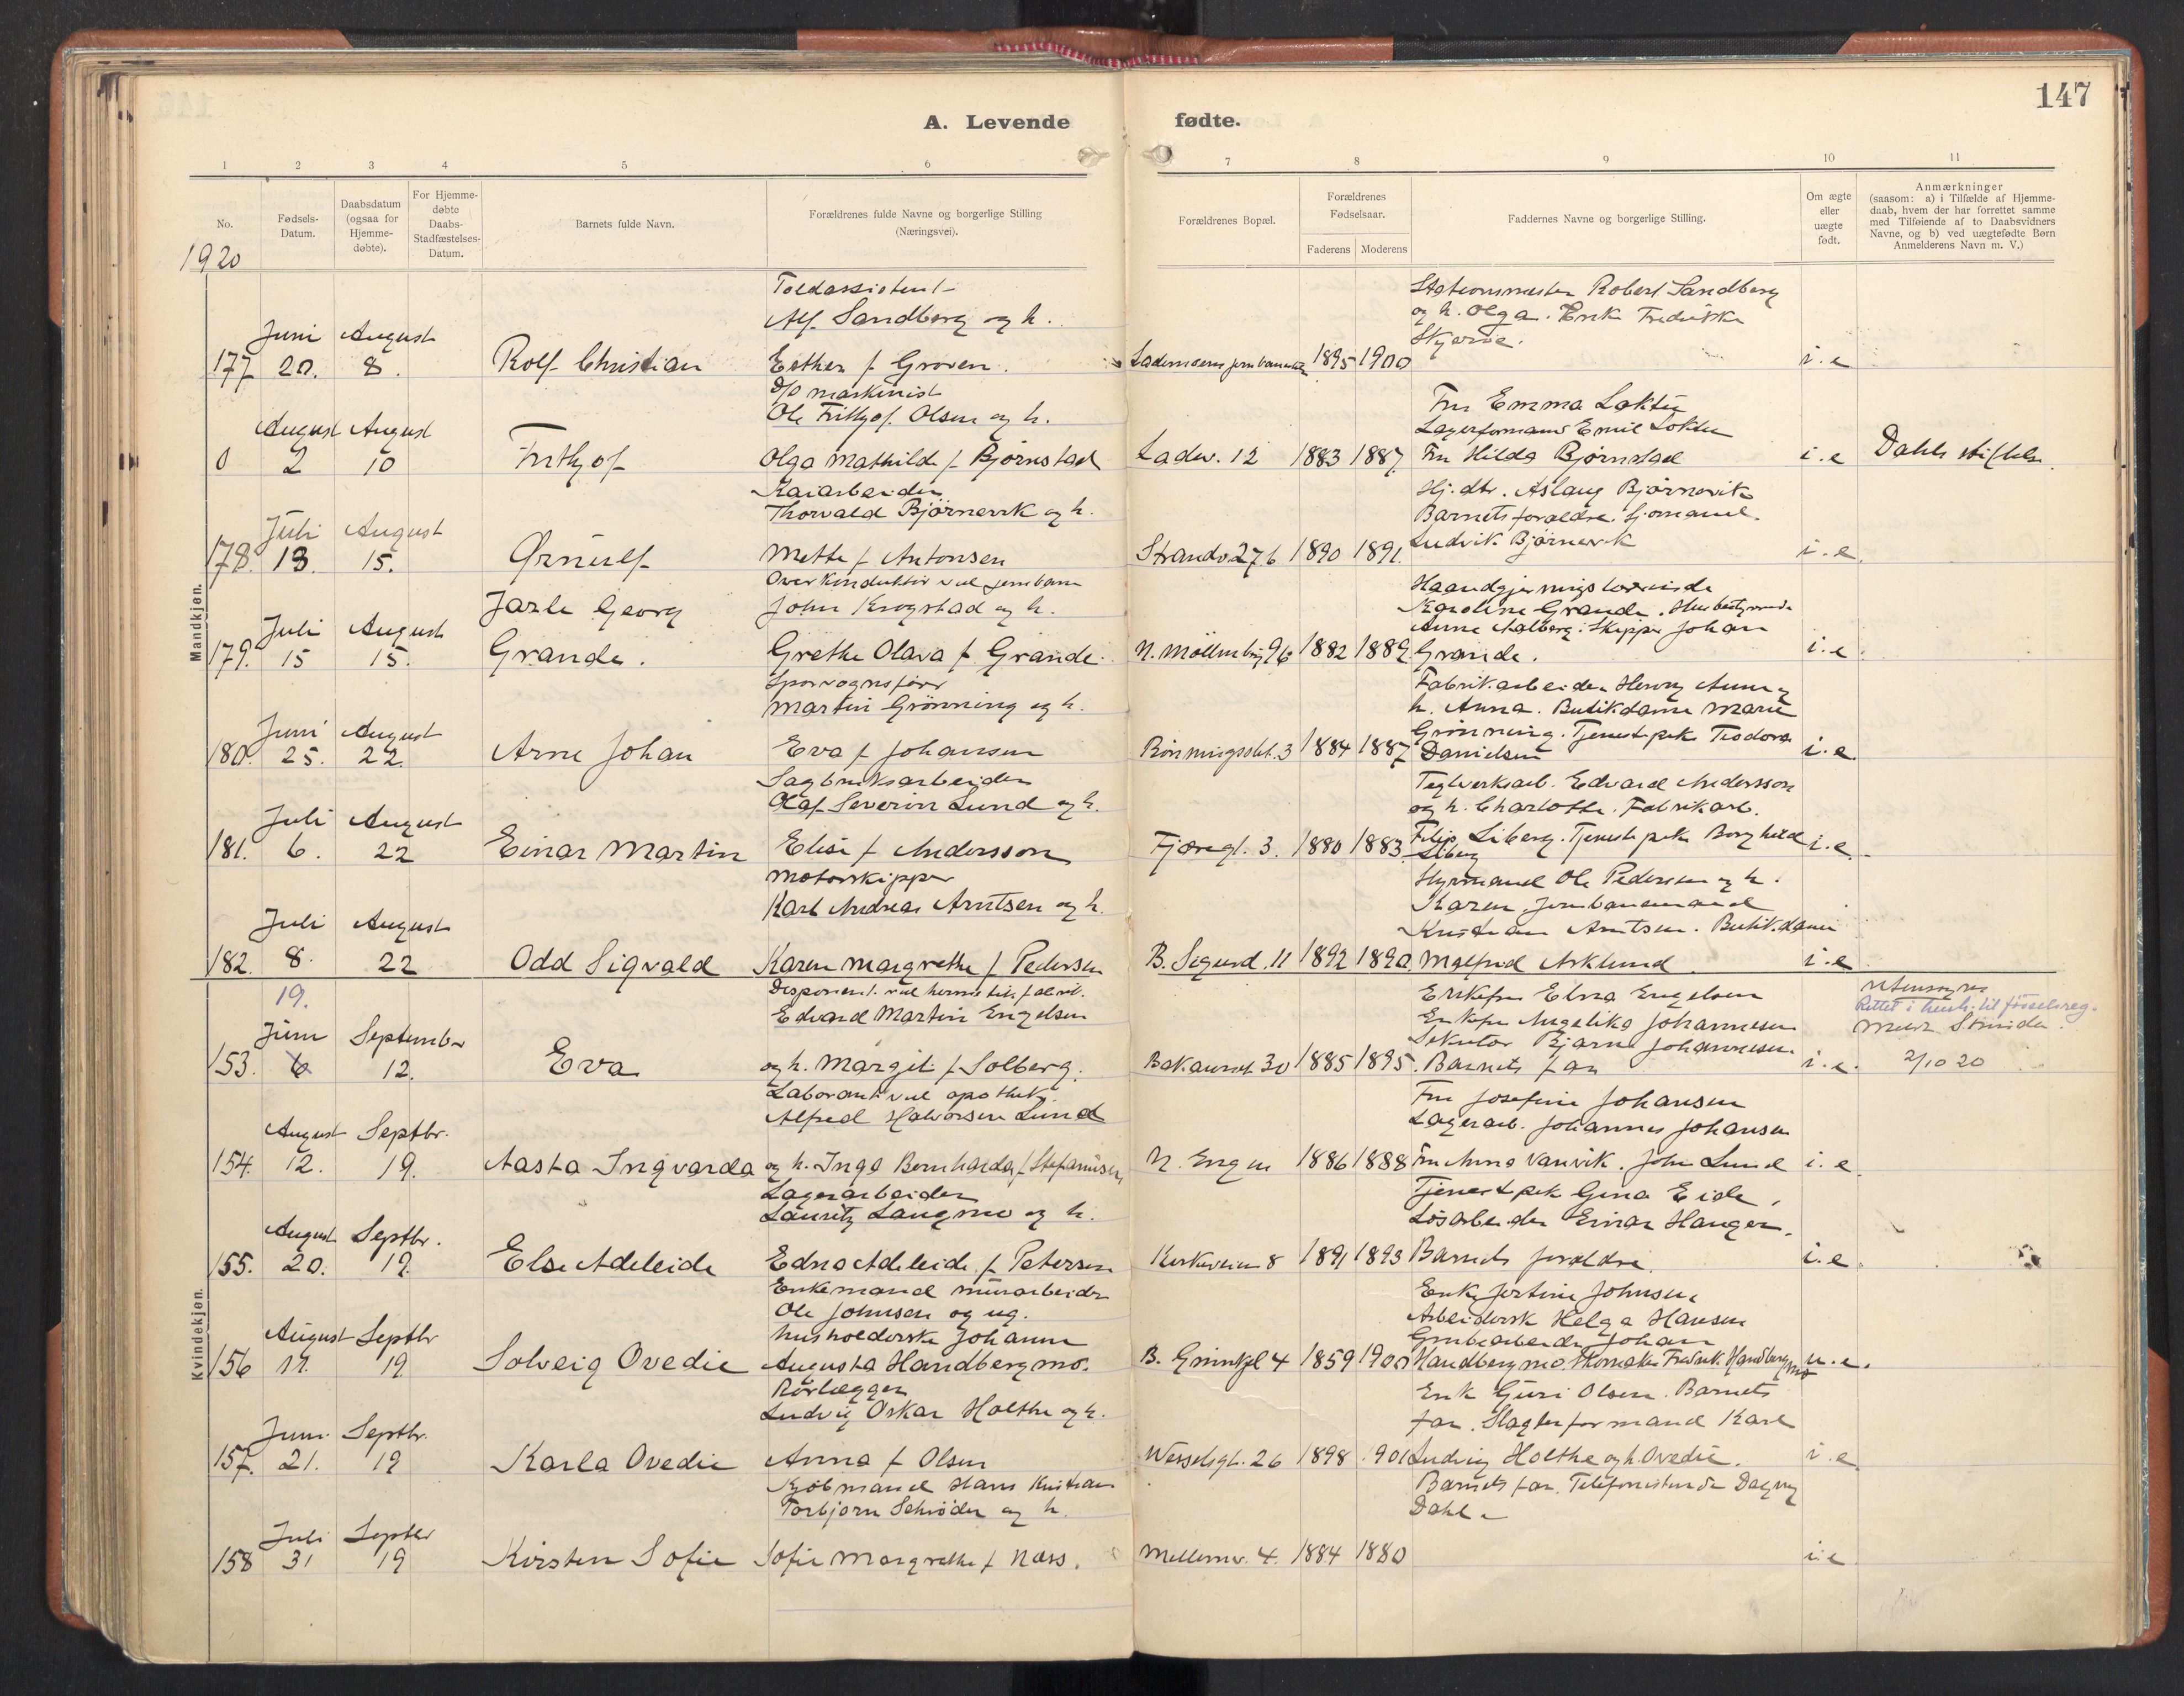 147
A. Levende fødte.
1 2 3 4 5 6 7 8 9 10 11
No.
Fødsels-Datum.
Daabsdatum (ogsaa for Hjemme-døbte).
For Hjemme-døbte Daabs-Stadfæstelses-Datum.
Barnets fulde Navn.
Forældrenes fulde Navne og borgerlige Stilling (Næringsvei).
Forældrenes Bopæl.
Forældrenes Fødselsaar.
Faderens Moderens
Faddernes Navne og borgerlige Stilling.
Om ægte eller uægte født.
Anmærkninger
(saasom: a) i Tilfælde af Hjemme-
daab, hvem der har forrettet samme
med Tilføiende af to Daabsvidners
Navne, og b) ved uægtefødte Børn
Anmelderens Navn m. V.)
1920
Mandkjøn.
Toldassistent
Stationsmester Robert Sandberg
Alf Sandberg og h.
og h. Olga. Enke Fredrikke
Juni August
177 20. 8. Rolf Christian Esther f Groven. 1895 1900 i.e
D/o maskinist
Ole Frithjof Olsen og h.
Fru Emma Lokten
August August
Lagerformand Emil Lokten
0 2 10 Frithjof Olga Mathilde f Bjørnstad Ladev. 12 1883 1887 Fru Hilda Bjørnstad i.e Dahls stiftelse.
Kaiarbeider
Hj. dtr. Aslaug Bjørnevik
Thorvald Bjørnevik og h.
Barnets forældre. Sjømand
Juli August
178. 13. 15. Ørnulf Mette f Antonsen Strandv 27b 1890 1891. Ludvik Bjørnevik i.e.
Overkonduktør ved jernbanen
Haandgjerningslærerinde
Jarle Georg John Krogstad og h.
Karoline Grande. Husbestyrerinde
Juli August
Anne Aalberg. Skipper Johan
179. 15 15. Grande. Grethe Olava f Grande. N. Møllenbg 96 1882 1889. Grande. i.e.
Sporvognsfører
Fabrikarbeider Henry Aune og
Martin Grønning og h.
h. Anna. Butikdame Marie
Juni August
Grønning. Tjenestpike Teodora
180. 25. 22. Arne Johan Eva f Johansen Rønningsslet. 3 1884 1887 Danielsen i.e.
Sagbruksarbeider
Teglverksarb. Edvard Andersson
Olaf Severin Lund og h.
og h. Charlotte. Fabrikarb.
Juli August
181. 6. 22 Einar Martin Elise f Andersson Fjæregt. 3. 1880 1883. Filip Liberg. Tjenestepike Borghild i.e.
Liberg
Motorskipper
Styrmand Ole Pedersen og h.
Karl Andreas Arntsen og h.
Karen. Jernbanemand
Juli August
Kristian Arntsen. Butikdame
182. 8. 22 Odd Sigvald Karen Margrethe f Pedersen B. Sigurd. 11 1892 1890. Malfrid Asklund i.e
Kvindekjøn.
19.
Disponent ved hermetikfabrik.
Enkefru Elna Engelsen
Rettet i henh. til fødselsreg.
Edvard Martin Engelsen
Enkefru Angelika Johannesen
Juni September
Sekretær Bjarne Johannesen
153. 6 12. Eva og h. Margit f Solberg. Bakaunet 30 1885 1895. Barnets far i.e. 2/10 20
Laborant ved apothek
Fru Josefine Johansen
Alfred Halvorsen Lund
Lagerarb. Johannes Johansen
August Septbr.
154. 12. 19. Aasta Ingvarda og h. Inga Bernharda f Stefanusen N. Engen 1886 1888 Fru Anna Vanvik. John Lund i.e.
Lagerarbeider
Tjenestpik Gina Eide,
Lauritz Langmo og h.
Løsarbeider Einar Hanger.
August Septbr.
155. 20. 19. Else Adeleide Edna Adeleide f Petersen Kirkeveien 8 1891 1893 Barnets forældre. i.e.
Enkemand murarbeider
Enke Jertine Johnsen
Ole Johnsen og ug.
Arbeiderske Helga Hansen
August Septbr
husholderske Johanne
Grubearbeider Johan
156 11. 19 Solveig Ovedie Augusta Handbergmo. B. Grinkjel 4 1859 1900 Handbergmo. Skomaker Fredrik Handbergmo u.e.
Rørlægger
Enke Guri Olsen. Barnets
Ludvig Oskar Holthe og h.
far. Slagterformand Karl
Juni Septbr.
157. 21. 19 Karla Ovedie Anna f Olsen Wesselsgt. 26 1898 1901 Ludvig Holthe og h. Ovedie. i.e
Kjøbmand Hans Kristian
Barnets far. Telefonistinde Dagny
Torbjørn Schrøder og h.
Dahl.
Juli Septbr
158 31 19 Kirsten Sofie Sofie Margrethe f Næss. Mellemv. 4. 1884 1880 i.e